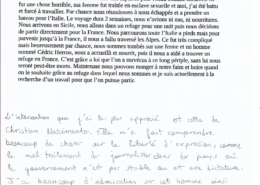 fur une chose horrible, ma femme fut traitée en esclave sexuelle et moi, j'ai été battu
et forcé à travailler. Par chance nous réussissons à nous échappés et a prendre un
bateau pour l'Italie. Le voyage dura 2 semaines, nous n'avions ni eau, ni nourritures.
Nous arrivons en Sicile, nous allons dans un refuge pour une nuit puis nous décidons
de partir directement pour la France. Nous parcourons toute l'Italie à pieds mais pour
parvenir jusqu'à la France, il nous a fallu traverser les Alpes. Ce fut très compliqué
mais heureusement par chance, nous sommes tombés sur une femme et un homme
nommé Cédric Herrou, nous a accueilli et nourri, puis il nous a aidé à trouver un
refuge en France. C'est grâce à lui que l'on a survécu à ce long périple, sans lui nous
serions peut être morts. Maintenant nous pouvons manger à notre faim et boire quand
on le souhaite grâce au refuge dans lequel nous sommes et je suis actuellement à la
recherche d'un travail pour que l'on puisse partir.
L'intervention que j'ai le plus apprécié est celle de
Christian Nascimento. Elle m'a fait comprendre
beaucoup de chose sur la liberté d'expression comme
le mal traitement de journalistes dans des pays où
le gouvernement n'est pas stable ou est une dictature.
J'ai beaucoup d'admiration